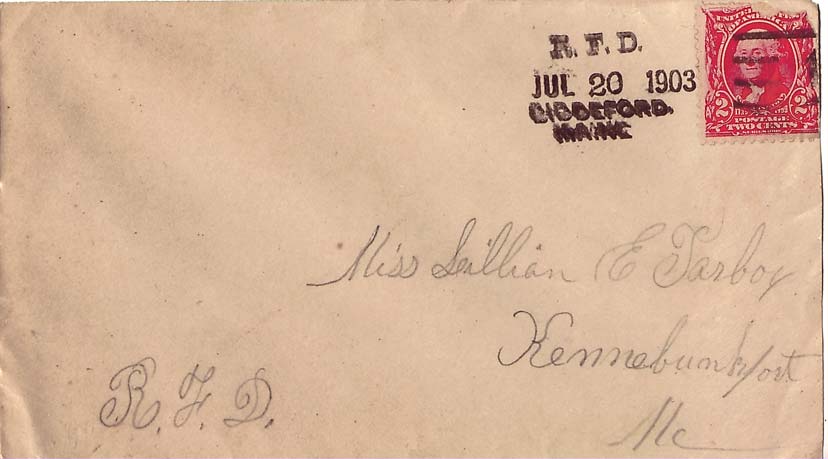 R. F. D.
JUL 20 1903
BIDDEFORD.
MAINE
UNITED STATES
OF AMERICA
2 2
POSTAGE
TWO CENTS
Miss Lillian E Tarbox
Kennebunkport
Me
R. F. D.